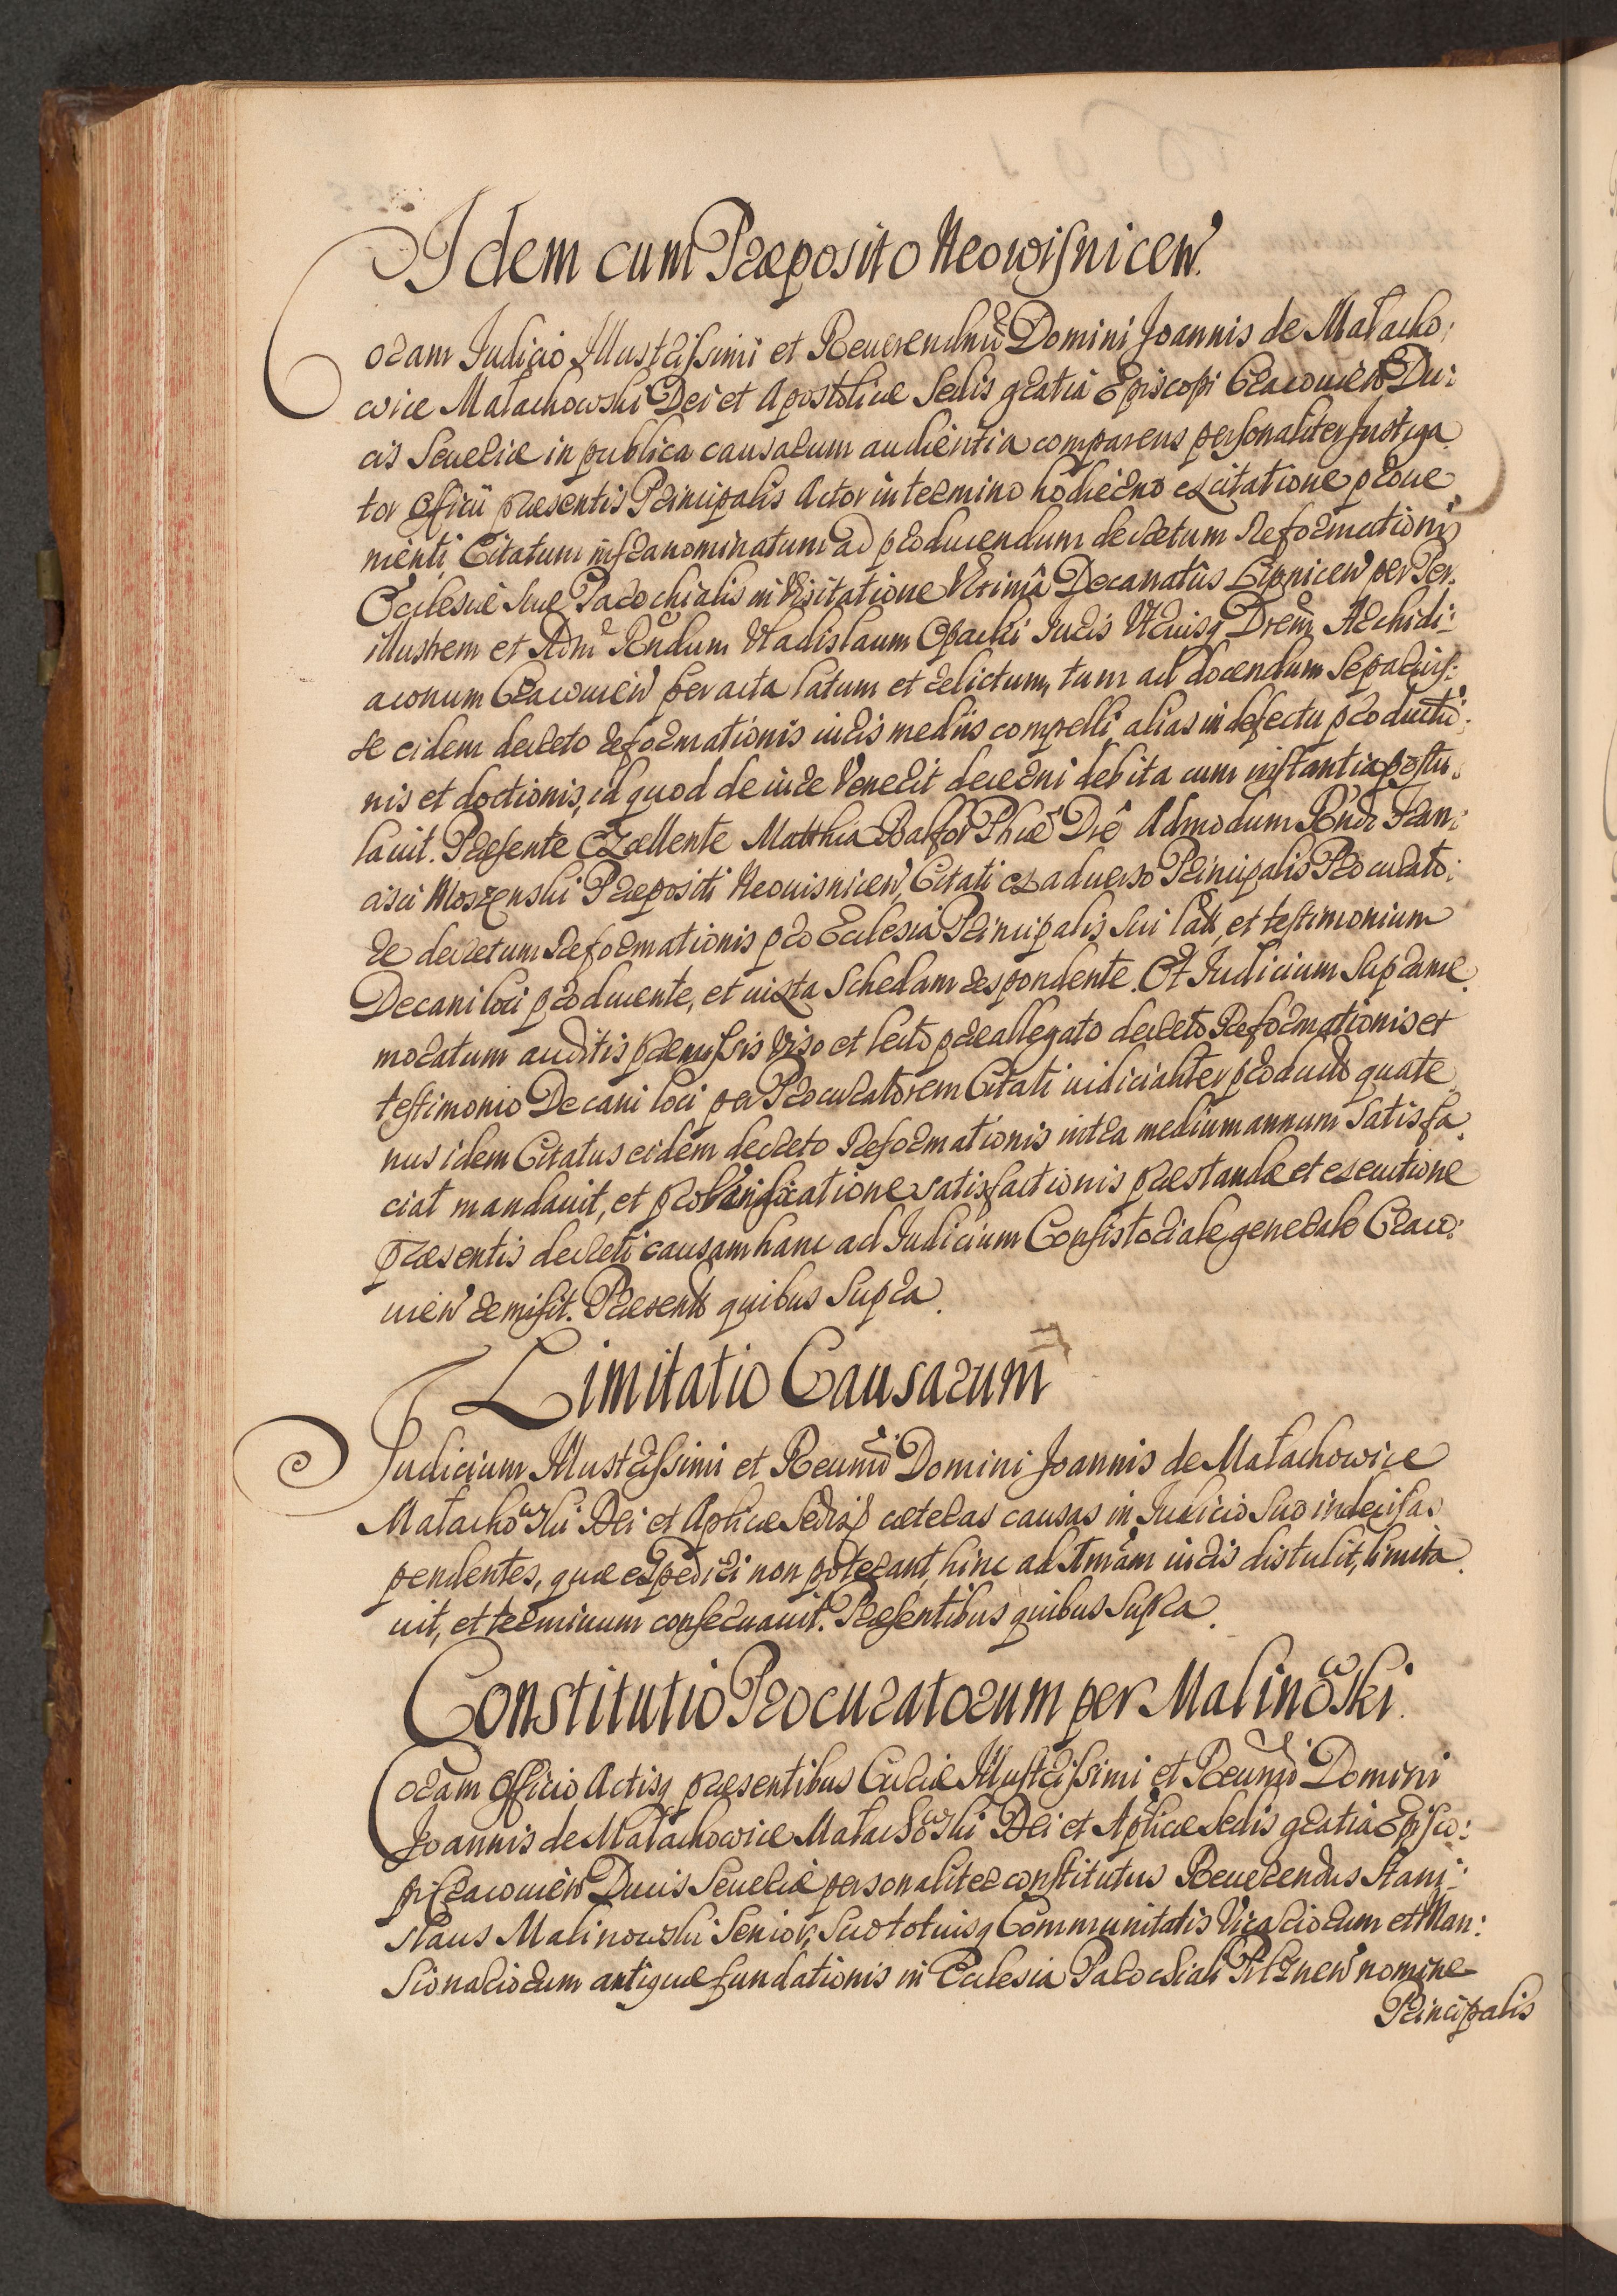 Idem cum Præposito Neowisnicen̄.
Coram Judicio Illustrissimi et Reuerendissimi Domini Joannis de Małacho:
wice Małachowski Dei et Apostolicæ Sedis gratia Episcopi Cracouien̄ Du:
cis Seueriæ in publica causarum audientia comparens personaliter Instiga
tor Officii præsentis Principalis Actor in termino hodierno ex citatione proue
nienti Citatum infranominatum ad producendum decretum Reformationis
Ecclesiæ suæ Parochialis in Visitatione Vltima Decanatus Lipnicen̄ per Per:
illustrem et Adm̄ Rn̄dum Vladislaum Opacki Juris Vtriusq Drem̄ Archidi:
aconum Cracouien̄ peracta latum et relictum, tum ad docendum se paruis:
se eidem decreto reformationis iuris mediis compelli, alias in defectu productio:
nis et doctionis, id quod de iure Venerit decerni debita cum instantia postu:
lauit. Præsente Excellente Matthia Phiæ Dre Admodum Rn̄di Fran:
cisci Moszenski Præpositi Neouisnicen̄, Citati ex aduerso Principalis Procurato:
re decretum Reformationis pro Ecclesia Principalis sui lati, et testimonium
Decani loci producente, et iuxta Schedam respondente. Et Judicium supra me
moratum auditis præmissis Viso et lecto præallegato decreto Reformationis et
testimonio Decani loci per Procuratorem Citati iudicialiter producto quate
nus idem Citatus eidem decreto Reformationis intra medium annum satisfa
ciat mandauit, et pro satisfactionis præstandæ et executione
præsentis decreti causam hanc ad Judicium Consistoriale generale Craco:
uien̄ remisit. Præsentb quibus supra.
Limitatio Causarum
Judicium Illustrissimi et Reun̄di Domini Joannis de Małachowice
Małachowski Dei et Aplicæ Sedis cæteras causas in Judicio suo indecisas
pendentes, quæ expediri non poterant, hinc ad iuris distulit, limita
uit, et terminum conseruauit. Præsentibus quibus supra.
Constitutio Procuratorum per Malinowski.
Coram Officio Actisq præsentibus Curiæ Illustrissimi et Reun̄di Domini
Joannis de Małachowice Małachowski Dei et Aplicæ Sedis gratia Episco:
pi Cracouien̄ Ducis Seueriæ personaliter constitutus Reuerendus Stani:
slaus Malinowski Senior, suo totiusq Communitatis Vicariorum et Man:
sionariorum antiquæ fundationis in Ecclesia Parochiali Pilznen̄ nomine
Principalis